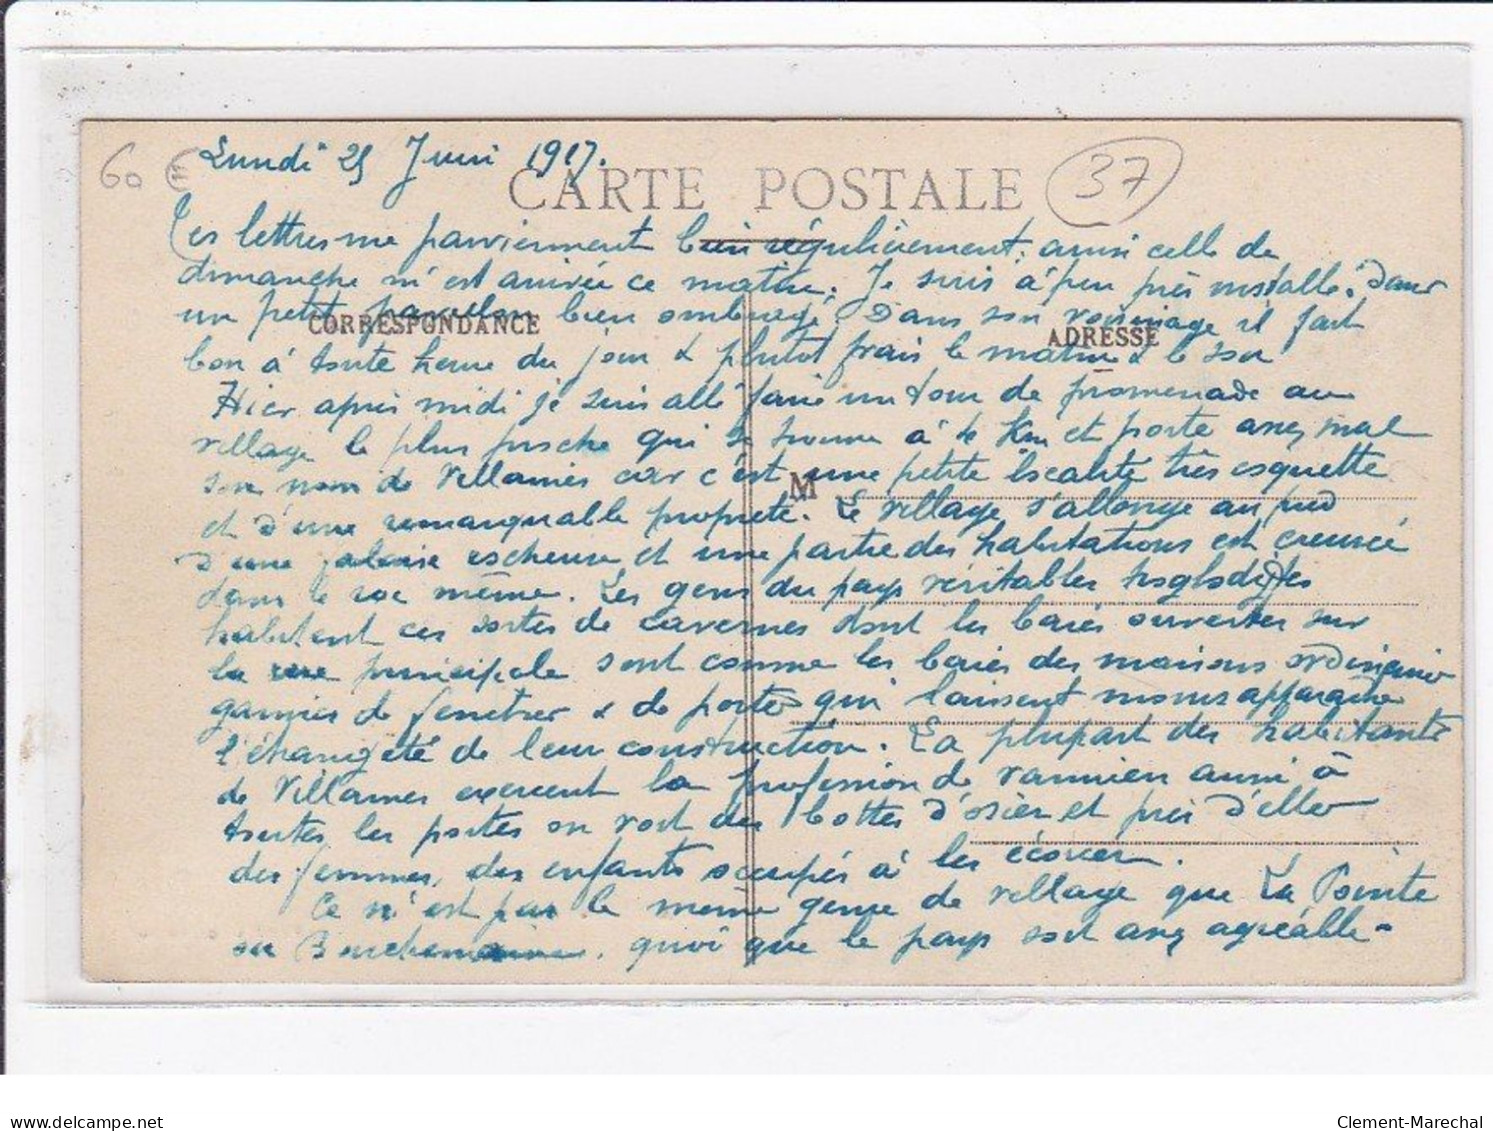 60
Lundi 25 Juin 1917.
CARTE POSTALE
37
Tes lettres me parviennent bien régulièrement, aussi celle de
dimanche m'est arrivée ce matin. Je suis à peu près installé. Dans
un petit pavillon bien ombragé. Dans son voisinage il fait
CORRESPONDANCE
ADRESSE
bon à toute heure du jour & plutôt frais le matin & le soir
Hier après midi je suis allé faire un tour de promenade au
village le plus proche qui se trouve à 4 Km et porte assez mal
son nom de Villaines car c'est une petite localité très coquette
M
et d'une remarquable propreté. Le village s'allonge au pied
d'une falaise rocheuse et une partie des habitations est creusée
dans le roc même. Les gens du pays véritables troglodytes
habitent ces sortes de cavernes dont les baies ouvertes sur
la rue principale sont comme les baies des maisons ordinaires
garnies de fenêtres & de portes qui laissent moins apparaître
l'étrangeté de leur construction. La plupart des habitants
de Villaines exercent la profession de vannier aussi à
toutes les portes on voit des bottes d'osier et près d'elles
des femmes, des enfants occupés à les écorcer.
Ce n'est pas le même genre de village que La Pointe
ou quoi que le pays soit assez agréable.
Clement-Marechal
delcampe.net